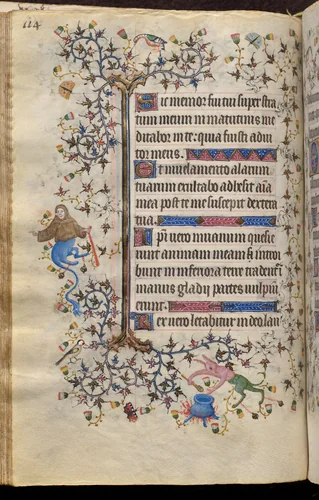 114
Si memor fui tui super stra
tum meum in matutinis me
ditabor in te: quia fuisti adiu
tor meus.
Et in velamento alarum
tuarum exultabo adhesit aīa
mea post te me suscepit dextera
tua.
Ipsi vero in vanum quesie
runt animam meam & introi
bunt in inferiora terre tradent̄
in manus gladii partes vulpiū
erunt.
Rex vero letabitur in deo lau